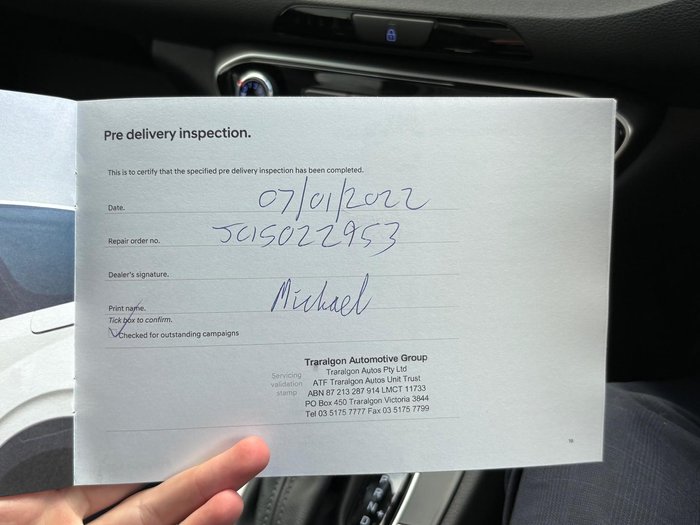 Pre delivery inspection.
This is to certify that the specified pre delivery inspection has been completed.
Date. 07/01/2022
Repair order no. JC15022953
Dealer's signature.
Print name. Michael
Tick box to confirm.
Checked for outstanding campaigns
Servicing validation stamp
Traralgon Automotive Group
Traralgon Autos Pty Ltd
ATF Traralgon Autos Unit Trust
ABN 87 213 287 914 LMCT 11733
PO Box 450 Traralgon Victoria 3844
Tel 03 5175 7777 Fax 03 5175 7799